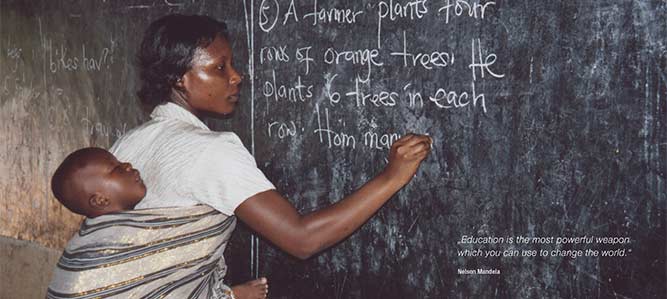 bikes hav?
5) A farmer plants four
rows of orange trees. He
plants 6 trees in each
row. How man
„Education is the most powerful weapon
which you can use to change the world.“
Nelson Mandela